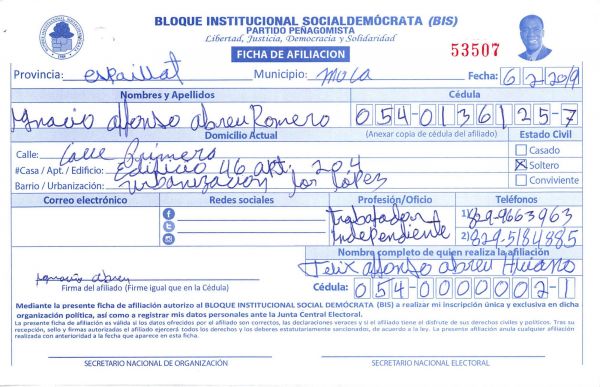 BLOQUE INSTITUCIONAL SOCIALDEMÓCRATA (BIS)
PARTIDO PEÑAGOMISTA
Libertad, Justicia, Democracia y Solidaridad
FICHA DE AFILIACION
53507
Provincia: espaillat Municipio: moca Fecha: 6/2/2019
Nombres y Apellidos Cédula
Ygnacio alfonso abreu Romero 054-0136125-7
Domicilio Actual (Anexar copia de cédula del afiliado) Estado Civil
Calle: Calle Primera Casado
#Casa / Apt. / Edificio: Edificio 46 apt. 204 Soltero
Barrio / Urbanización: urbanizacion los lópez Conviviente
Correo electrónico Redes sociales Profesión/Oficio Teléfonos
trabafador 1) 829-9663963
Independiente 2) 829-5184885
Nombre completo de quien realiza la afiliación
Felix alfonso abreu
Ygnacio abreu
Firma del afiliado (Firme igual que en la Cédula) Cédula: 054-0000002-1
Mediante la presente ficha de afiliación autorizo al BLOQUE INSTITUCIONAL SOCIAL DEMÓCRATA (BIS) a realizar mi inscripción única y exclusiva en dicha
organización política, así como a registrar mis datos personales ante la Junta Central Electoral.
La presente ficha de afiliación es válida si los datos ofrecidos por el afiliado son correctos, las declaraciones veraces y si el afiliado tiene el disfrute de sus derechos civiles y políticos. Tras su
recepción, sello y firmas autorizadas el afiliado ejercerá todos los derechos y los deberes estatutariamente sancionados, de acuerdo a la ley. La presente afiliación anula cualquier afiliación
realizada con anterioridad a la fecha que aparece en esta ficha.
SECRETARIO NACIONAL DE ORGANIZACIÓN SECRETARIO NACIONAL ELECTORAL